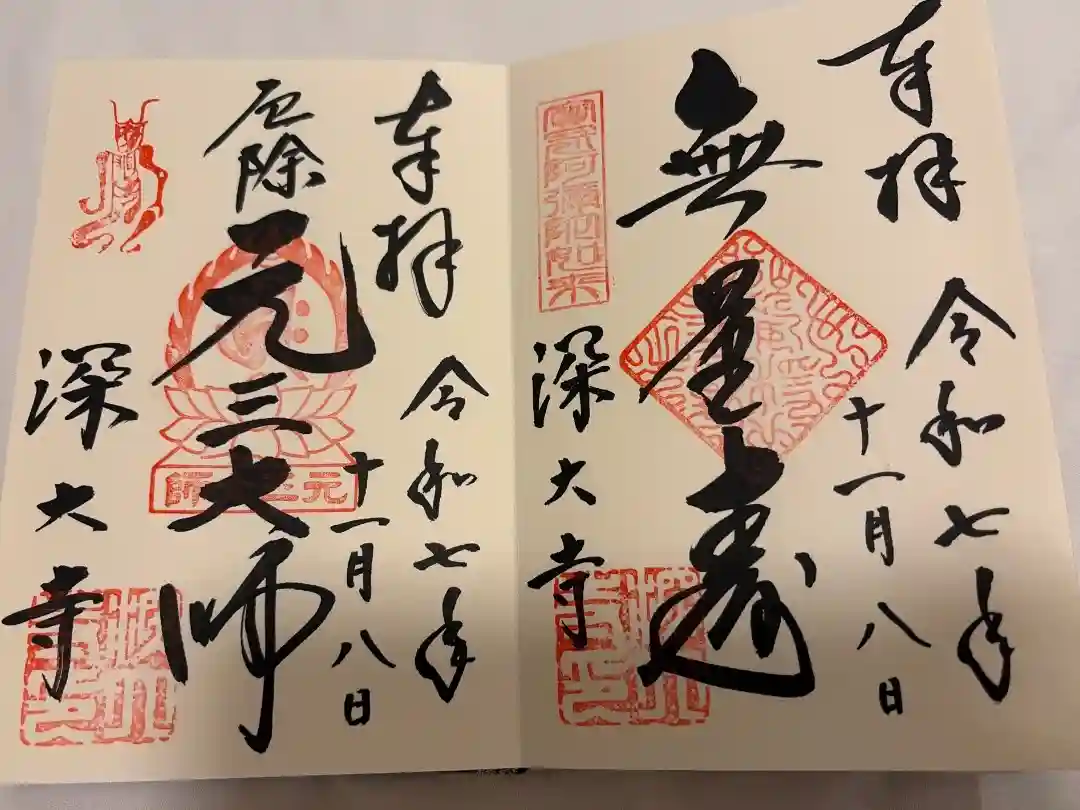 奉拝
令和七年
十一月八日
無量壽
寶冠阿彌陀如来
深大寺
奉拝
令和七年
十一月八日
厄除
元三大師
元三大師
深大寺